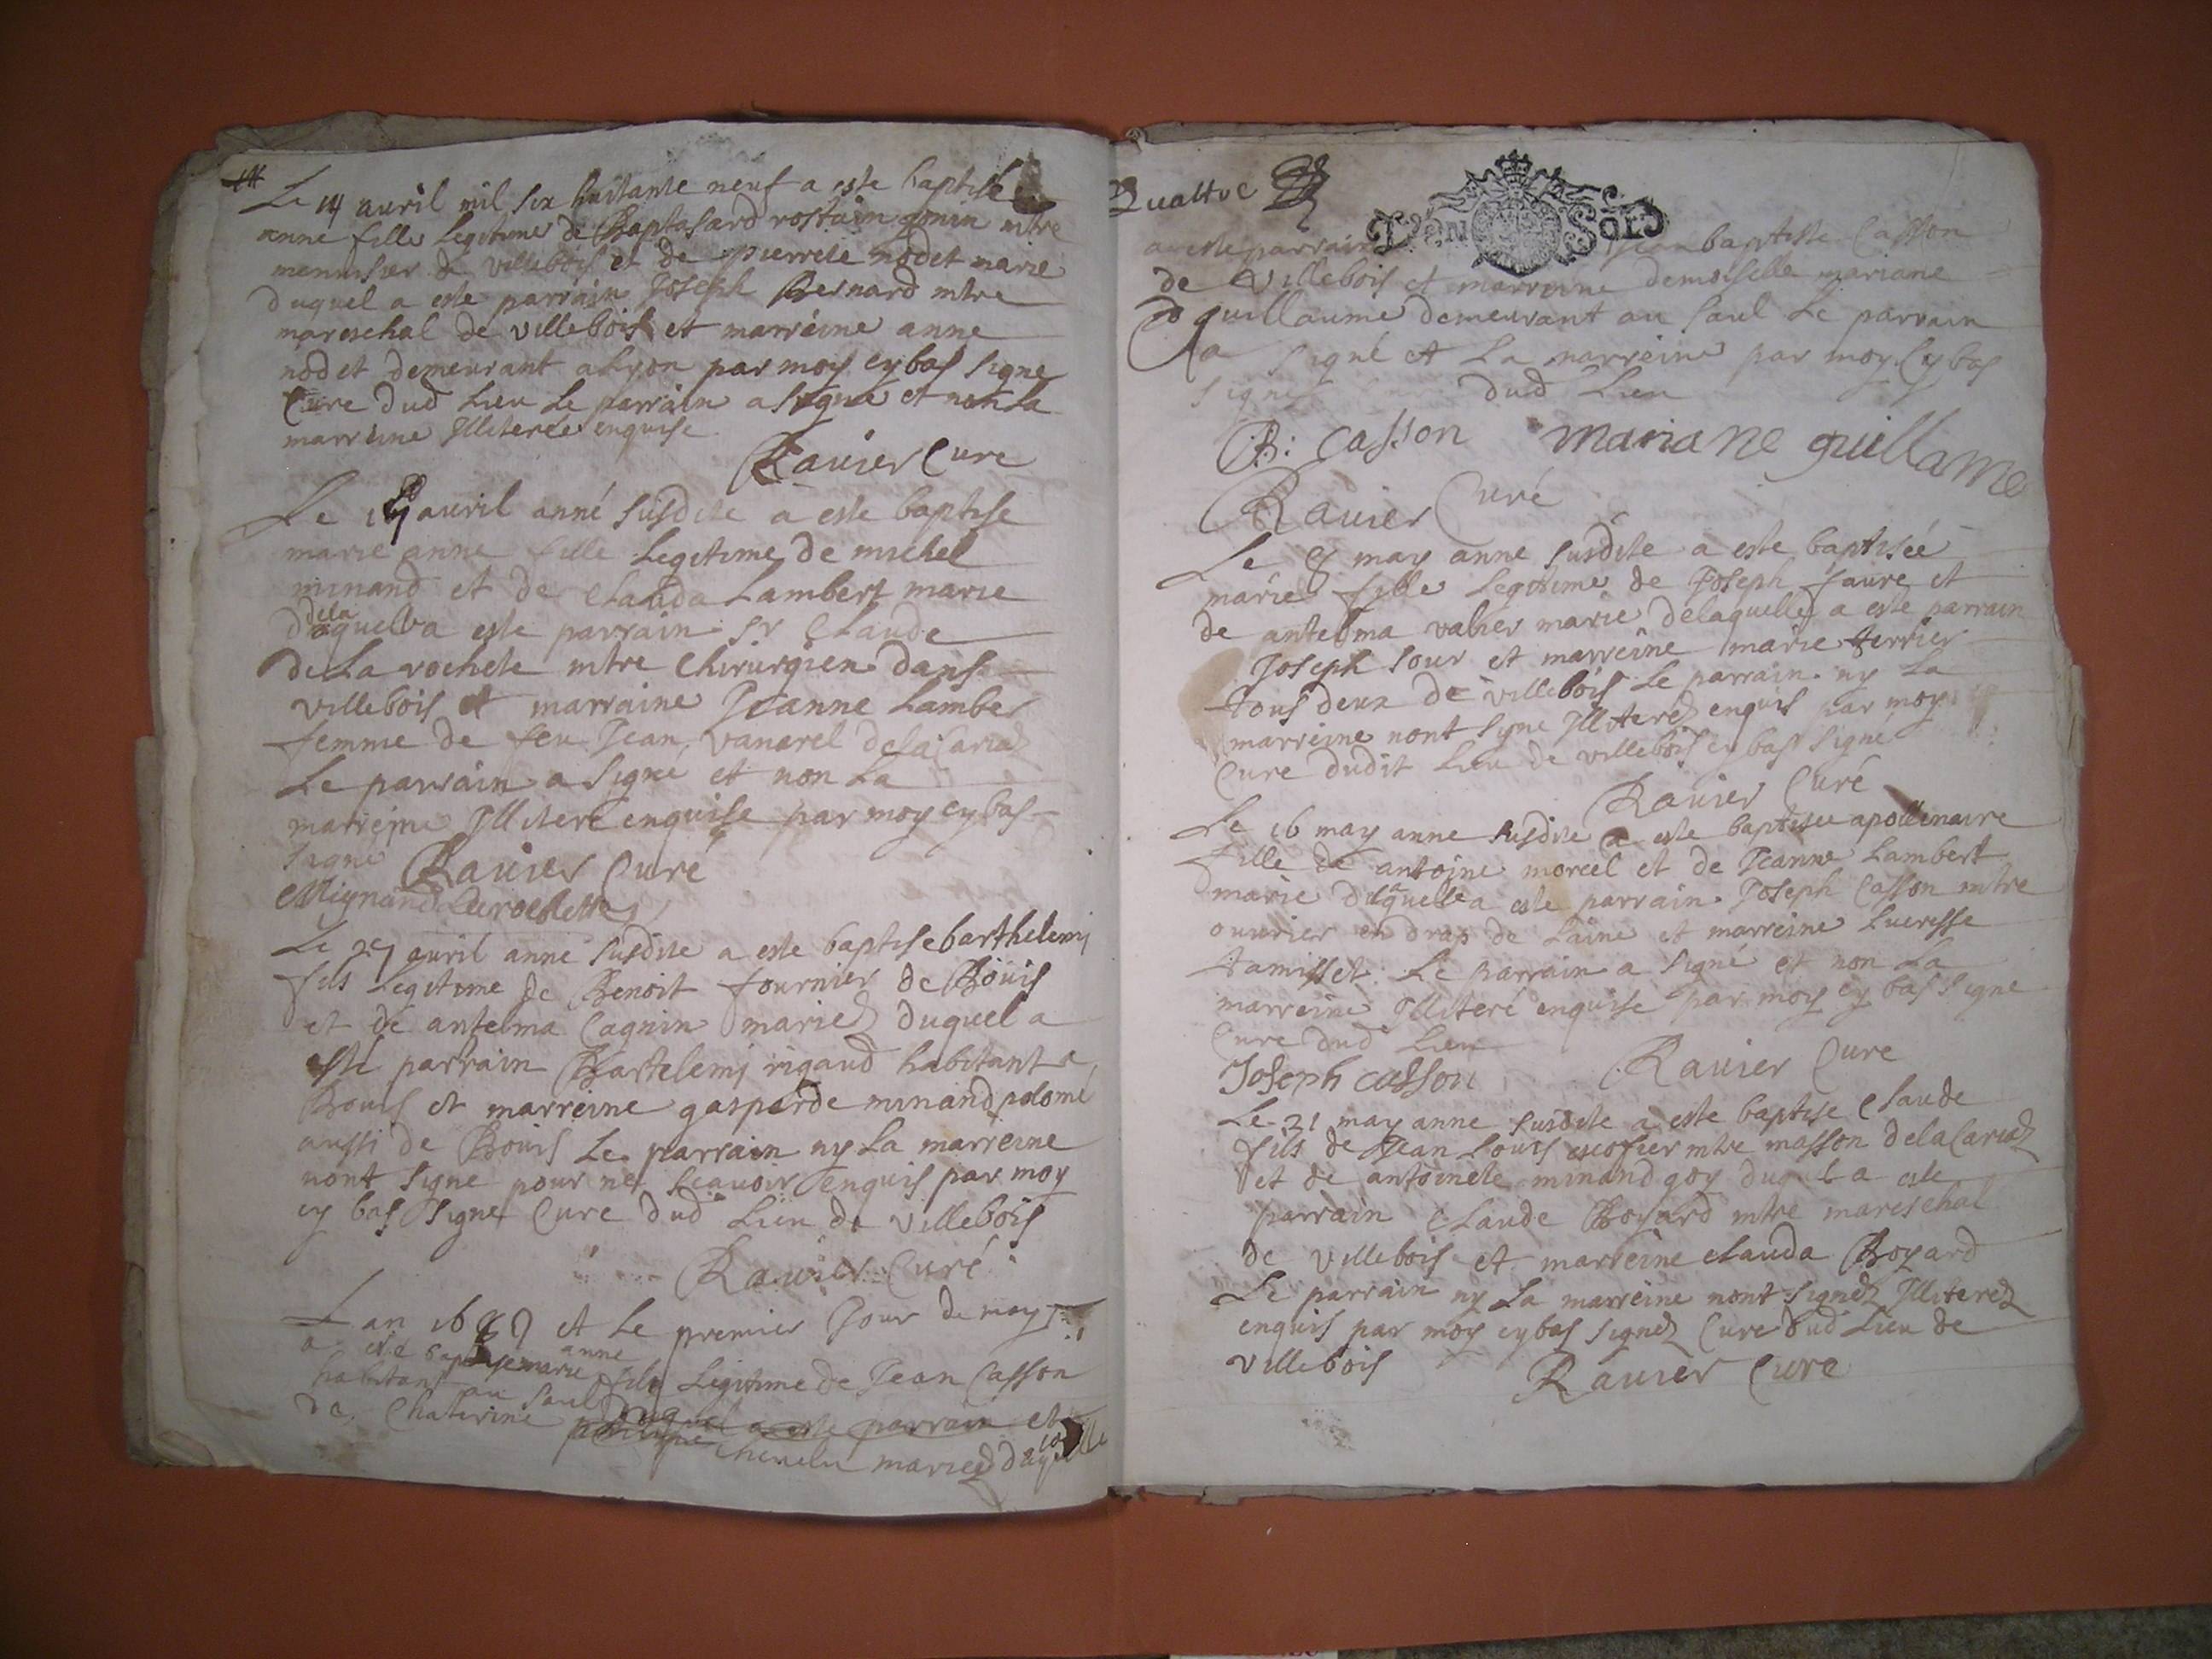 Le 14 auril mil six huitante neuf a este baptise
anne fille Legitime de Baptasard rostain gonin mtre
menusier de villebois et de pierrete nodet marie
duquel a este parrain Joseph Bernard mtre
mareschal de villebois et marreine anne
nodet demeurant a Lyon par moy cy bas signe
Cure dud Lieu Le parrain a signe et non La
marreine Illiteree enquise
Rauier Cure
Le auril anné susdite a este baptise
marie anne fille Legitime de michel
minand et de Clauda Lambert marie
dela quelle a este parrain sr Claude
de La rochete mtre Chirurgien dans
villebois et marraine Jeanne Lamber
femme de feu Jean vanarel dela Cariaz
Le parrain a signé et non La
marreine Illiteré enquise par moy cy bas
signé Rauier Curé
Mignand Derochette
Le 27 auril anne susdite a este baptise barthelemi
fils Legitime de Benoit fournier de Bouis
et de antelma Cagnin mariez duquel a
esté parrain Bartelemi rigaud habitant a
Bouis et marreine gasparde minand polome
aussi de Bouis Le parrain ny La marreine
nont signe pour ne scauoir enquis par moy
cy bas signe Cure dud Lieu de villebois
Rauier Curé
Lan 1689 et Le premier Jour de may
a esté baptise marie anne fille Legitime de Jean Casson
habitant au Saul
de Chaterine duquel a este parrain et
philippe Cheuelu mariez delaquelle
Quattre
Deux Sols
a este parrain Jean baptiste Casson
de Villebois et marreine demoiselle mariane
guillaume demeurant au saul Le parrain
a signé et La marreine par moy Cy bas
signe dud Lieu
B: Casson mariane guillame
Rauier Curé
Le 8 may anne susdite a este baptisée
marie fille Legitime de Joseph faure et
de antelma valier marie delaquelle a este parrain
Joseph sour et marreine marie terrier
tous deux de villebois Le parrain ny La
marreine nont signe Illiterez enquis par moy
Cure dudit Lieu de villebois cy bas signé
Rauier Curé
Le 16 may anne susdite a este baptisee apollinaire
fille de antoine morcel et de Jeanne Lambert
marie delaquelle a este parrain Joseph Casson mtre
ouurier en drap de Laine et marreine Lucresse
tamisset Le parrain a signé et non La
marreine Illiteré enquise par moy cy bas signe
Cure dud Lieu
Joseph casson Rauier Cure
Le 21 may anne susdite a este baptise Claude
fils de Jean Louis escofier mtre masson dela Cariaz
et de antoinete minand goy duquel a este
parrain Claude Boyard mtre mareschal
de villebois et marreine clauda Boyard
Le parrain ny La marreine nont signéz Illiterez
enquis par moy cy bas signez Cure dud Lieu de
villebois Rauier Cure